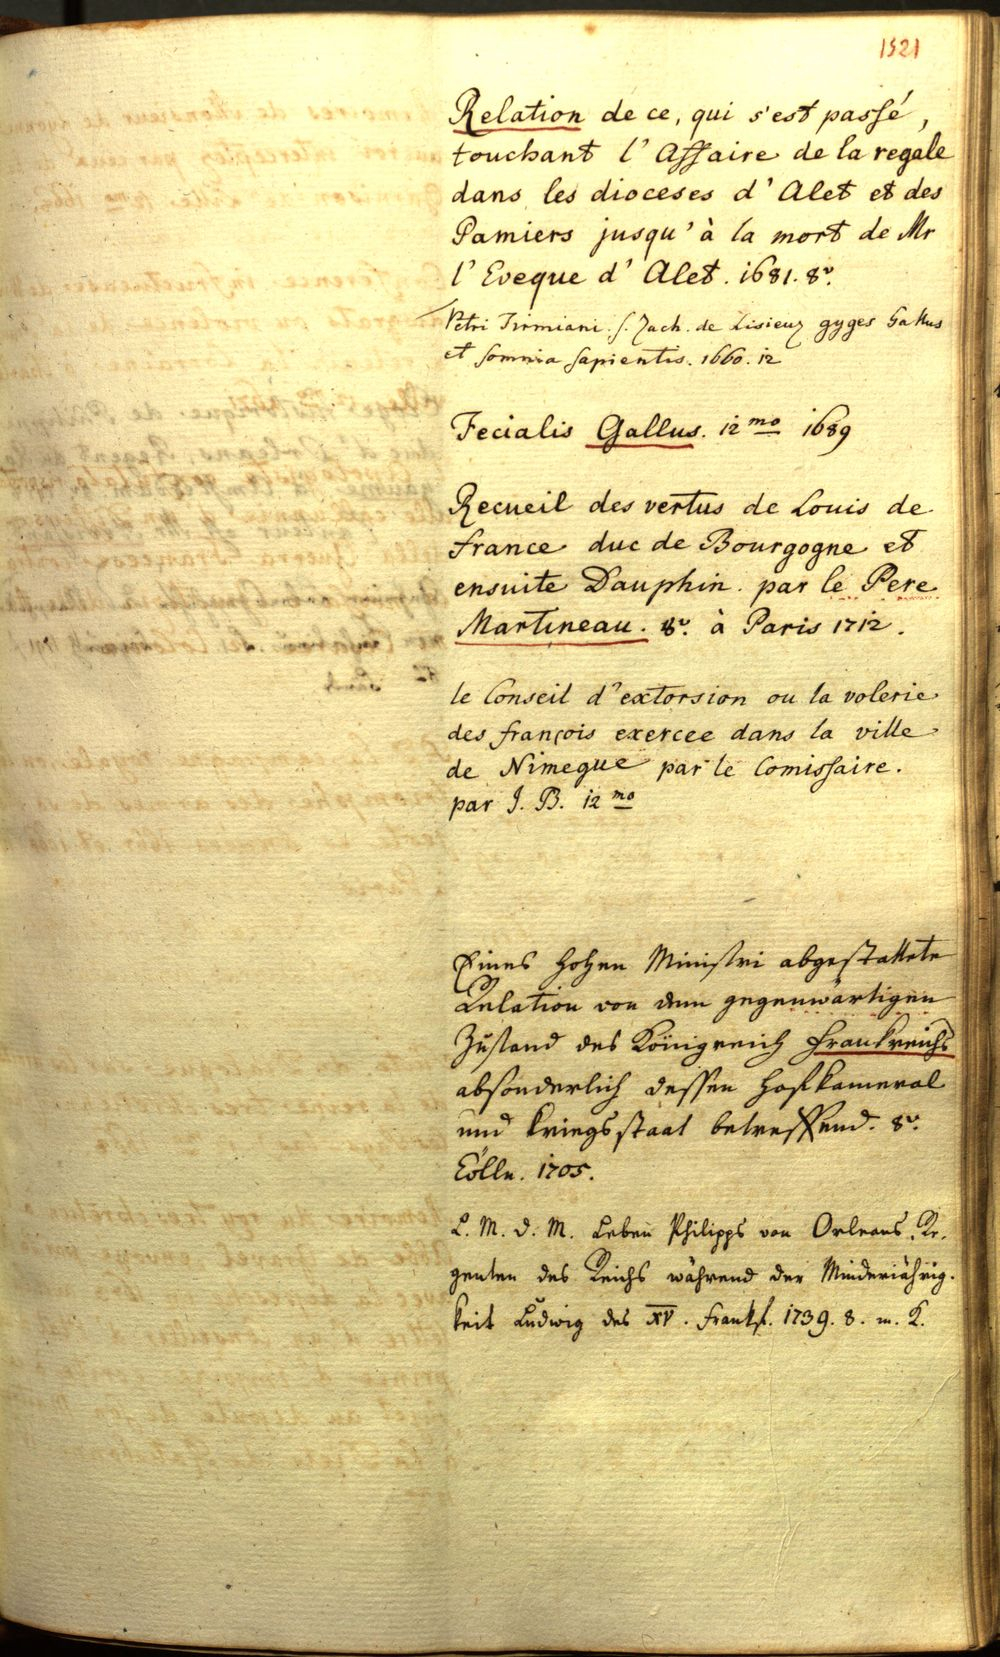 1521
Relation de ce, qui s'est passé,
touchant l'Affaire de la regale
dans les dioceses d'Alet et des
Pamiers jusqu'à la mort de Mr
l'Eveque d'Alet. 1681. 8v.
Petri Firmiani. s. Zach. de Lisieux gyges Gallus
et somnia sapientis. 1660. 12
Fecialis Gallus. 12mo 1689
Recueil des vertus de Louis de
france duc de Bourgogne et
ensuite Dauphin. par le Pere
Martineau. 8v. à Paris 1712.
le Conseil d'extorsion ou la volerie
des françois exercee dans la ville
de Nimegue par le Comissaire.
par J. B. 12mo
Eines hohen Ministri abgestattete
Relation von dem gegenwärtigen
Zustand des Königreich Frankreichs
absonderlich dessen hof kameral
und kriegsstaat betreffend. 8v.
Cölln. 1705.
L. M. d. M. Leben Philipps von Orleans, Re-
genten des Reichs während der Minderjährig-
keit Ludwig des XV. Frankf. 1739. 8. m. K.